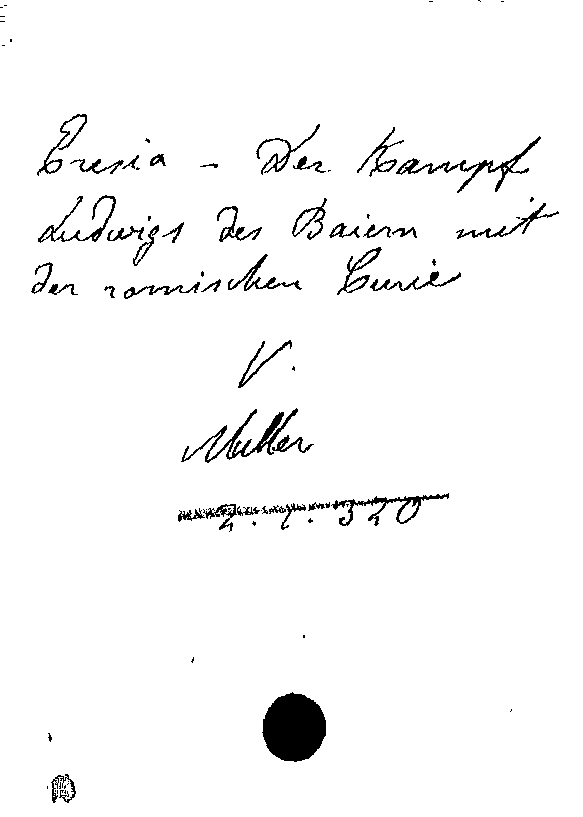 Eresia - Der Kampf
Ludwigs des Baiern mit
der romischen Curie
V.
Muller
2. 2. 320